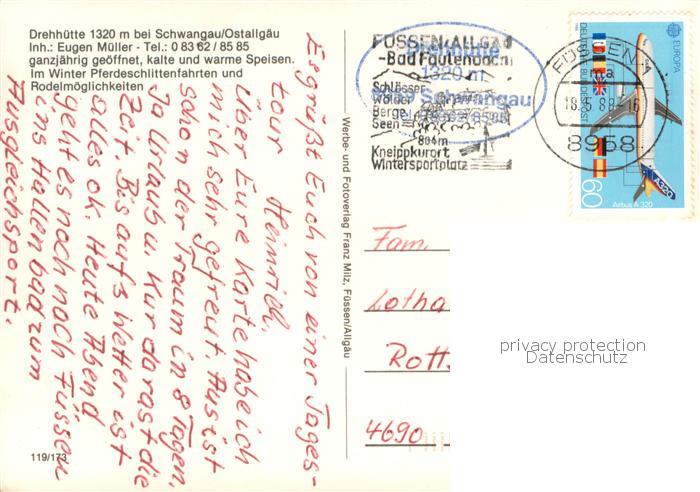 Drehhütte 1320 m bei Schwangau/Ostallgäu
Inh.: Eugen Müller - Tel.: 0 83 62 / 85 85
ganzjährig geöffnet, kalte und warme Speisen.
Im Winter Pferdeschlittenfahrten und
Rodelmöglichkeiten
Es grüßt Euch von einer Tages-
tour Heinrich.
Über Eure Karte habe ich
mich sehr gefreut. Aus ist
schon der Traum in 8 Tagen.
Ja Urlaub u. Kur da rast die
Zeit. Bis aufs Wetter ist
alles ok. Heute Abend
geht es noch nach Füssen
ins Hallenbad zum
Ausgleichsport.
119/173
Werbe- und Fotoverlag Franz Milz, Füssen/Allgäu
FÜSSEN/ALLGÄU
-Bad Faulenbach
Schlösser
Wälder
Berge
Seen
804m
Kneippkurort
Wintersportplatz
Drehhütte
1320 m
Schwangau
FÜSSEN 1
ma
8958
EUROPA
DEUTSCHE BUNDESPOST
60
A320
Airbus A 320
Fam.
Lotha
Rott
4690
privacy protection
Datenschutz